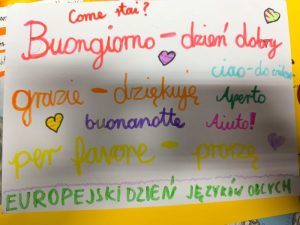 Come stai?
Buongiorno - dzień dobry
ciao - do
grazie - dziękuję
Aperto
buonanotte
Aiuto!
per favore - proszę
EUROPEJSKI DZIEŃ JĘZYKÓW OBCYCH